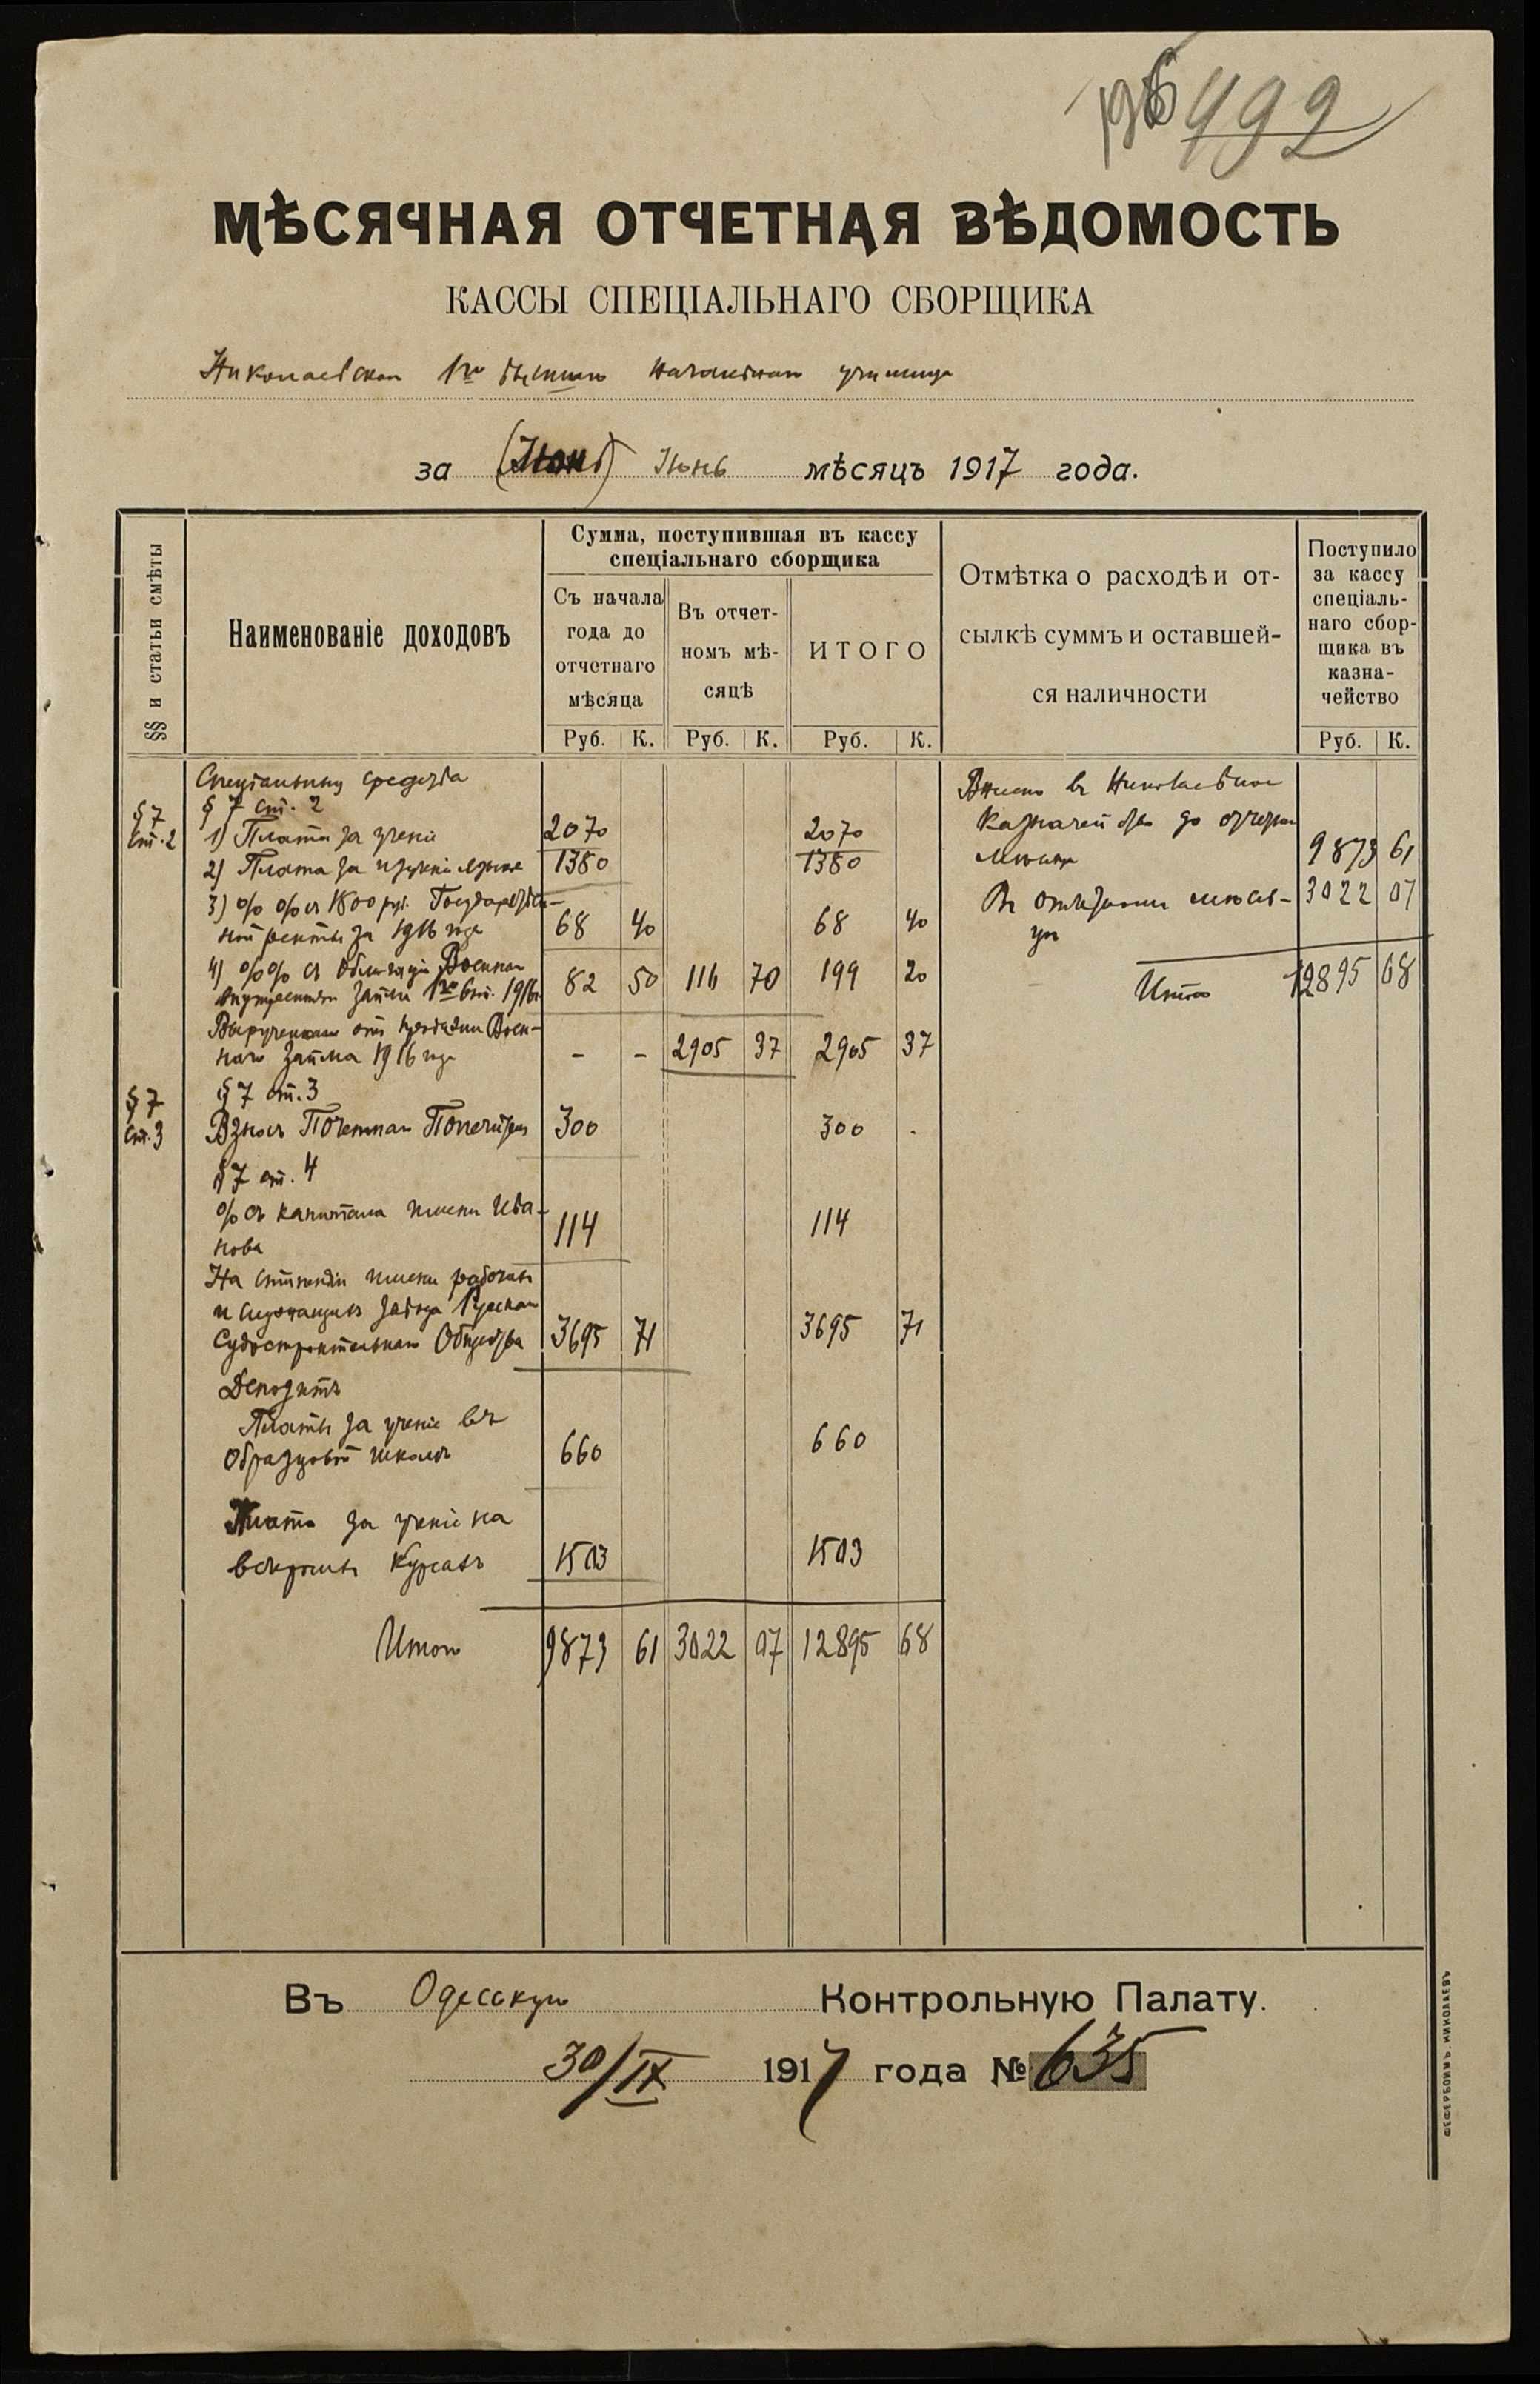 492
МѢСЯЧНАЯ ОТЧЕТНАЯ ВѢДОМОСТЬ
КАССЫ СПЕЦІАЛЬНАГО СБОРЩИКА
Николаевскаго 1го высшаго начальнаго училища
за (Іюнь) Іюнь мѣсяцъ 1917 года.
§§ и статьи смѣты
Наименованіе доходовъ
Сумма, поступившая въ кассу
спеціальнаго сборщика
Съ начала
года до
отчетнаго
мѣсяца
Въ отчет-
номъ мѣ-
сяцѣ
ИТОГО
Отмѣтка о расходѣ и от-
сылкѣ суммъ и оставшей-
ся наличности
Поступило
за кассу
спеціаль-
наго сбор-
щика въ
казна-
чейство
Руб. К. Руб. К. Руб. К. Руб. К.
Спеціальныя средства
§ 7 ст. 2
§ 7 ст. 2
1) Плата за ученіе 2070 2070
2) Плата за 1380 1380
3) % % съ 1800 руб. Государствен-
ной ренты за 1916 годъ 68 40 68 40
4) % % съ облигацій Военнаго
внутренняго займа 1916 г. 82 50 116 70 199 20
Вырученныя отъ продажи Воен-
наго займа 1916 года - - 2905 37 2905 37
§ 7 ст. 3
§ 7 ст. 3
Взносъ Почетнаго Попечителя 300 300 -
§ 7 ст. 4
% съ капитала имени Ива-
нова 114 114
На стипендіи имени рабочихъ
и служащихъ завода Русскаго
Судостроительнаго Общества 3695 71 3695 71
Депозитъ
Плата за ученіе въ
образцовой школѣ 660 660
Плата за ученіе на
вечернихъ курсахъ 1503 1503
Итого 9873 61 3022 07 12895 68
Внесено въ Николаевское
Казначейство до отчетнаго
мѣсяца 9873 61
Въ отчетномъ мѣся-
цѣ 3022 07
Итого 12895 68
Въ Одесскую Контрольную Палату.
30/IX 1917 года № 635
ФЕФЕРБОЙМЪ. НИКОЛАЕВЪ